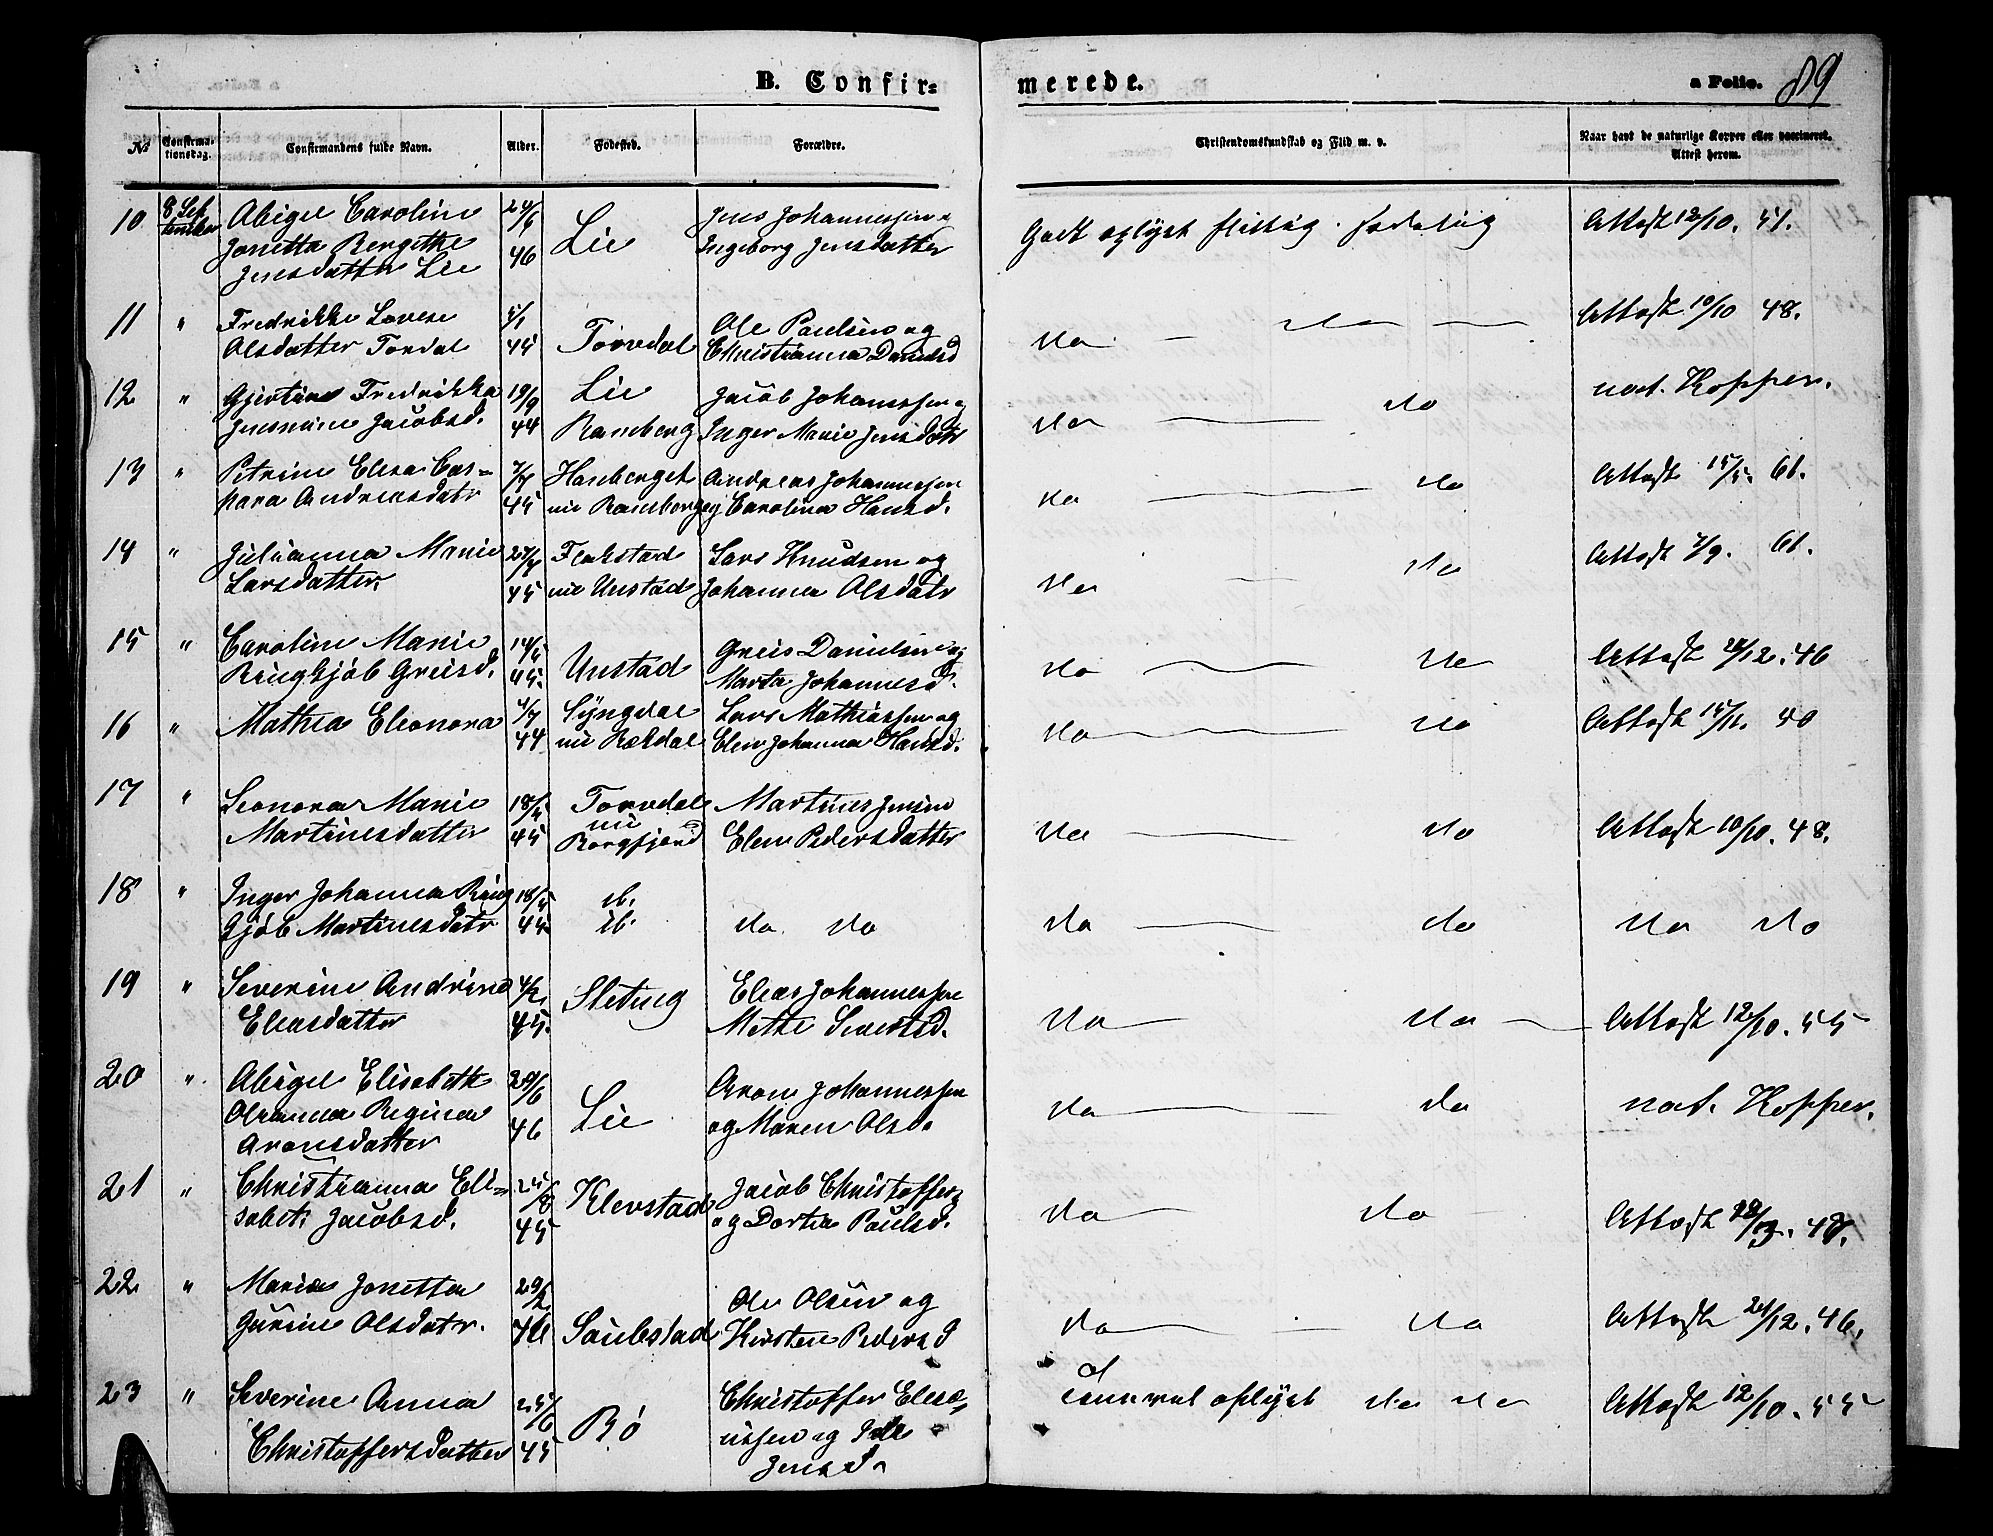 B. Confir=
merede.
a Folio. 89
No
Confirma-
tionsdag.
Confirmandens fulde Navn.
Alder.
Fødested.
Forældre.
Christendomskundskab og Flid m. v.
Naar havt de naturlige Kopper eller vaccineret.
Attest herom.
10 8 Sep
tember Abigel Caroline
Jonetta Bergithe
Jensdatter Lie
46
Lie
Jens Johannessen og
Ingeborg Jensdatter
Godt oplyst flittig
Attest 12/10. 51.
11 " Fredrikke Lovise
Olsdatter Tordal
45
Torvdal
Ole Paulsen og
Christianna Danielsd
do — do —
Attest 10/10 48.
12 " Gjertine Fredrikka
Jensmine Jacobsd.
19/9
44
Lie
Ramberg
Jacob Johannessen og
Inger Marie Jensdatr
do — do
nat. Kopper.
13 " Petrine Elisa Cas=
para Andreasdatr
7/7
45
Hamberget
nu Ramberg
Andreas Johannessen
og Carolina Hansd.
do — do
Attest 15/5. 61.
14 " Julianna Marie
Larsdatter
27/7
45
Flakstad
nu Unstad
Lars Knudsen og
Johanna Olsdatr
do — do
Attest 7/9. 61.
15 " Caroline Marie
Ringkjøb Greisd.
45.
Unstad
Greis Danielsen og
Marta Johannesd.
do — do
Attest 28/12. 46
16 " Mathea Eleonora
4/7
44
Syngdal
nu Rekdal
Lars Mathiassen og
Elen Johanna Hansd.
do — do
Attest 15/11. 40
17 " Leonora Marie
Martinesdatter
45
Torvdal
nu
Borgfjord
Martines Jensen
Elen Pedersdatter
do — do
Attest 10/10. 48.
18 " Inger Johanna Ring
kjøb Martinesdatr
45
ib.
ib.
do do
do — do
do do
19 " Severine Andrine
Eliasdatter
45.
Steting
Elias Johannessen
Mette Sivertsd.
do — do —
Attest 12/10. 55
20 " Abigel Elisabeth
Oleanna Regina
Aronsdatter
29/6
46
Lie
Aron Johannessen
og Maren Olsd.
do — do
nat. Kopper.
21 " Christianna Eli=
sabet Jacobsd.
25/8
45
Klevstad
Jacob Christoffer
og Dortea Paulsd.
do — do
Attest 48.
22 " Maria Jonetta
Gurine Olsdatr.
Ole Olsen og
Kirsten Pedersd
do — do
Attest 28/12. 46.
23 " Severine Anna
Christoffersdatter
25/6
45
Bø
Christoffer Elias=
issen og Ida
Jensd.
oplyst do do
Attest 12/10. 55